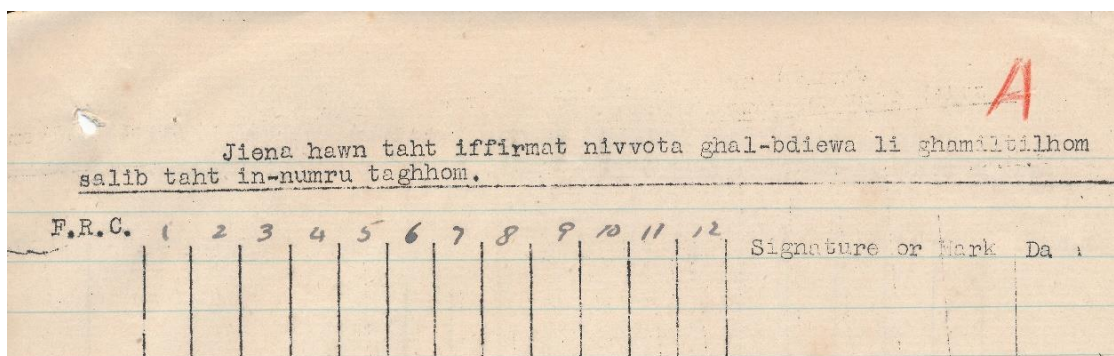 A
Jiena hawn taht iffirmat nivvota ghal-bdiewa li ghamiltilhom
salib taht in-numru taghhom.
F.R.C. 1 2 3 4 5 6 7 8 9 10 11 12 Signature or Mark Da